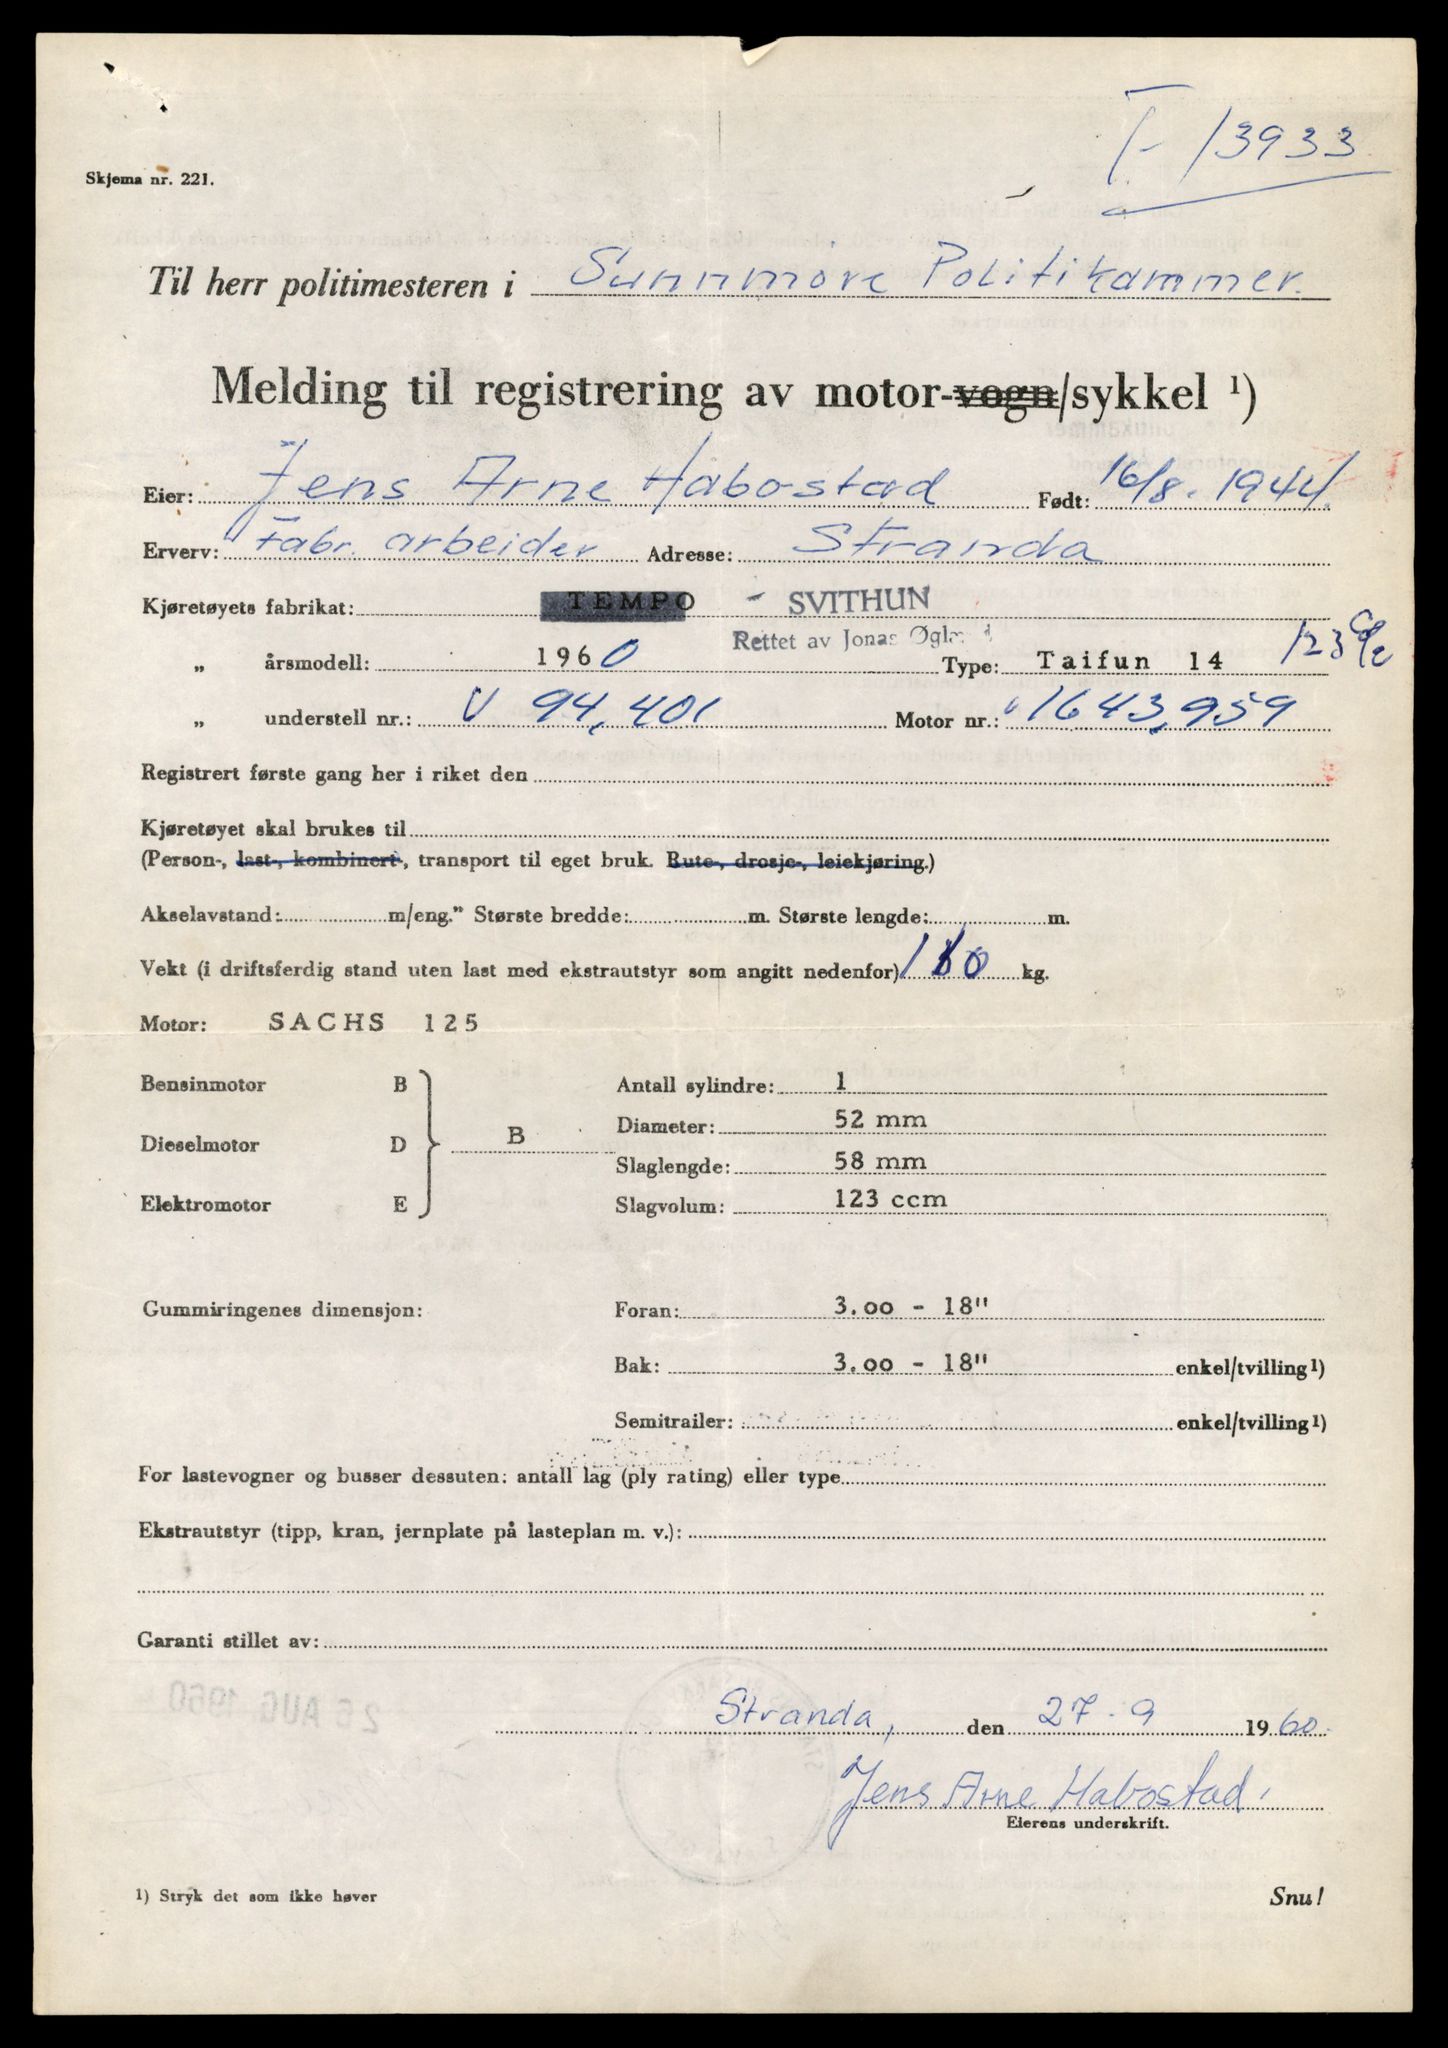 T- 13933
Skjema nr. 221.
Til herr politimesteren i Sunnmöre Politikammer.
Melding til registrering av motor-vogn/sykkel 1)
Eier: Jens Arne Habostad Født: 16/8. 1944.
Erverv: Fabr. arbeider Adresse: Stranda
Kjøretøyets fabrikat: TEMPO - SVITHUN
Rettet av Jonas
„ årsmodell: 1960 Type: Taifun 14 123 cc
„ understell nr.: V 94,401 Motor nr.: 1643,959
Registrert første gang her i riket den
Kjøretøyet skal brukes til
(Person-, last-, kombinert-, transport til eget bruk. Rute-, drosje-, leiekjøring.)
Akselavstand: m/eng." Største bredde: m. Største lengde: m.
Vekt (i driftsferdig stand uten last med ekstrautstyr som angitt nedenfor) kg.
Motor: SACHS 125
Bensinmotor B Antall sylindre: 1
Diameter: 52 mm
Dieselmotor D B
Slaglengde: 58 mm
Elektromotor E Slagvolum: 123 ccm
Gummiringenes dimensjon: Foran: 3.00 - 18"
Bak: 3.00 - 18" enkel/tvilling 1)
Semitrailer: enkel/tvilling 1)
For lastevogner og busser dessuten: antall lag (ply rating) eller type
Ekstrautstyr (tipp, kran, jernplate på lasteplan m. v.):
Garanti stillet av:
26 AUG 1960
Stranda, den 27-9 1960.
Jens Arne Habostad.
Eierens underskrift.
1) Stryk det som ikke høver
Snu!